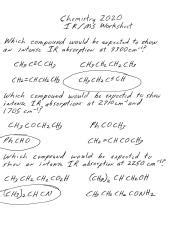 Chemistry 2020
IR/MS Worksheet
Which compound would be expected to show
an intense IR absorption at 3300 cm⁻¹?
CH₃C≡CCH₃ CH₃CH₂CH₂CH₃
CH₂=CHCH₂CH₃ CH₃CH₂C≡CH
Which compound would be expected to show
intense IR absorptions at 2710 cm⁻¹ and
1705 cm⁻¹?
CH₃COCH₂CH₃ PhCOCH₃
PhCHO CH₂=CHCOCH₃
Which compound would be expected to
show an intense IR absorption at 2250 cm⁻¹?
CH₃CH₂CH₂CO₂H (CH₃)₂CHCH₂OH
(CH₃)₂CHCN CH₃CH₂CH₂CONH₂